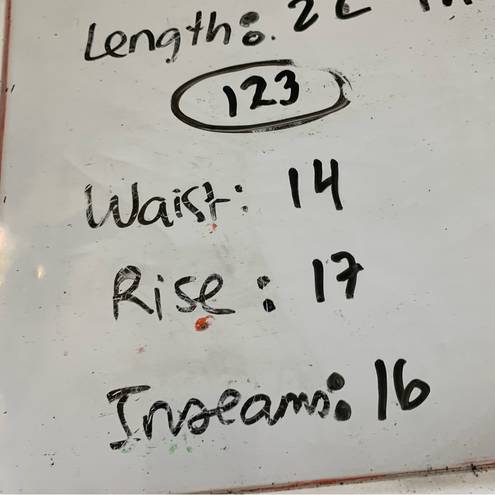 Length:
123
Waist: 14
Rise: 17
Inseam: 16